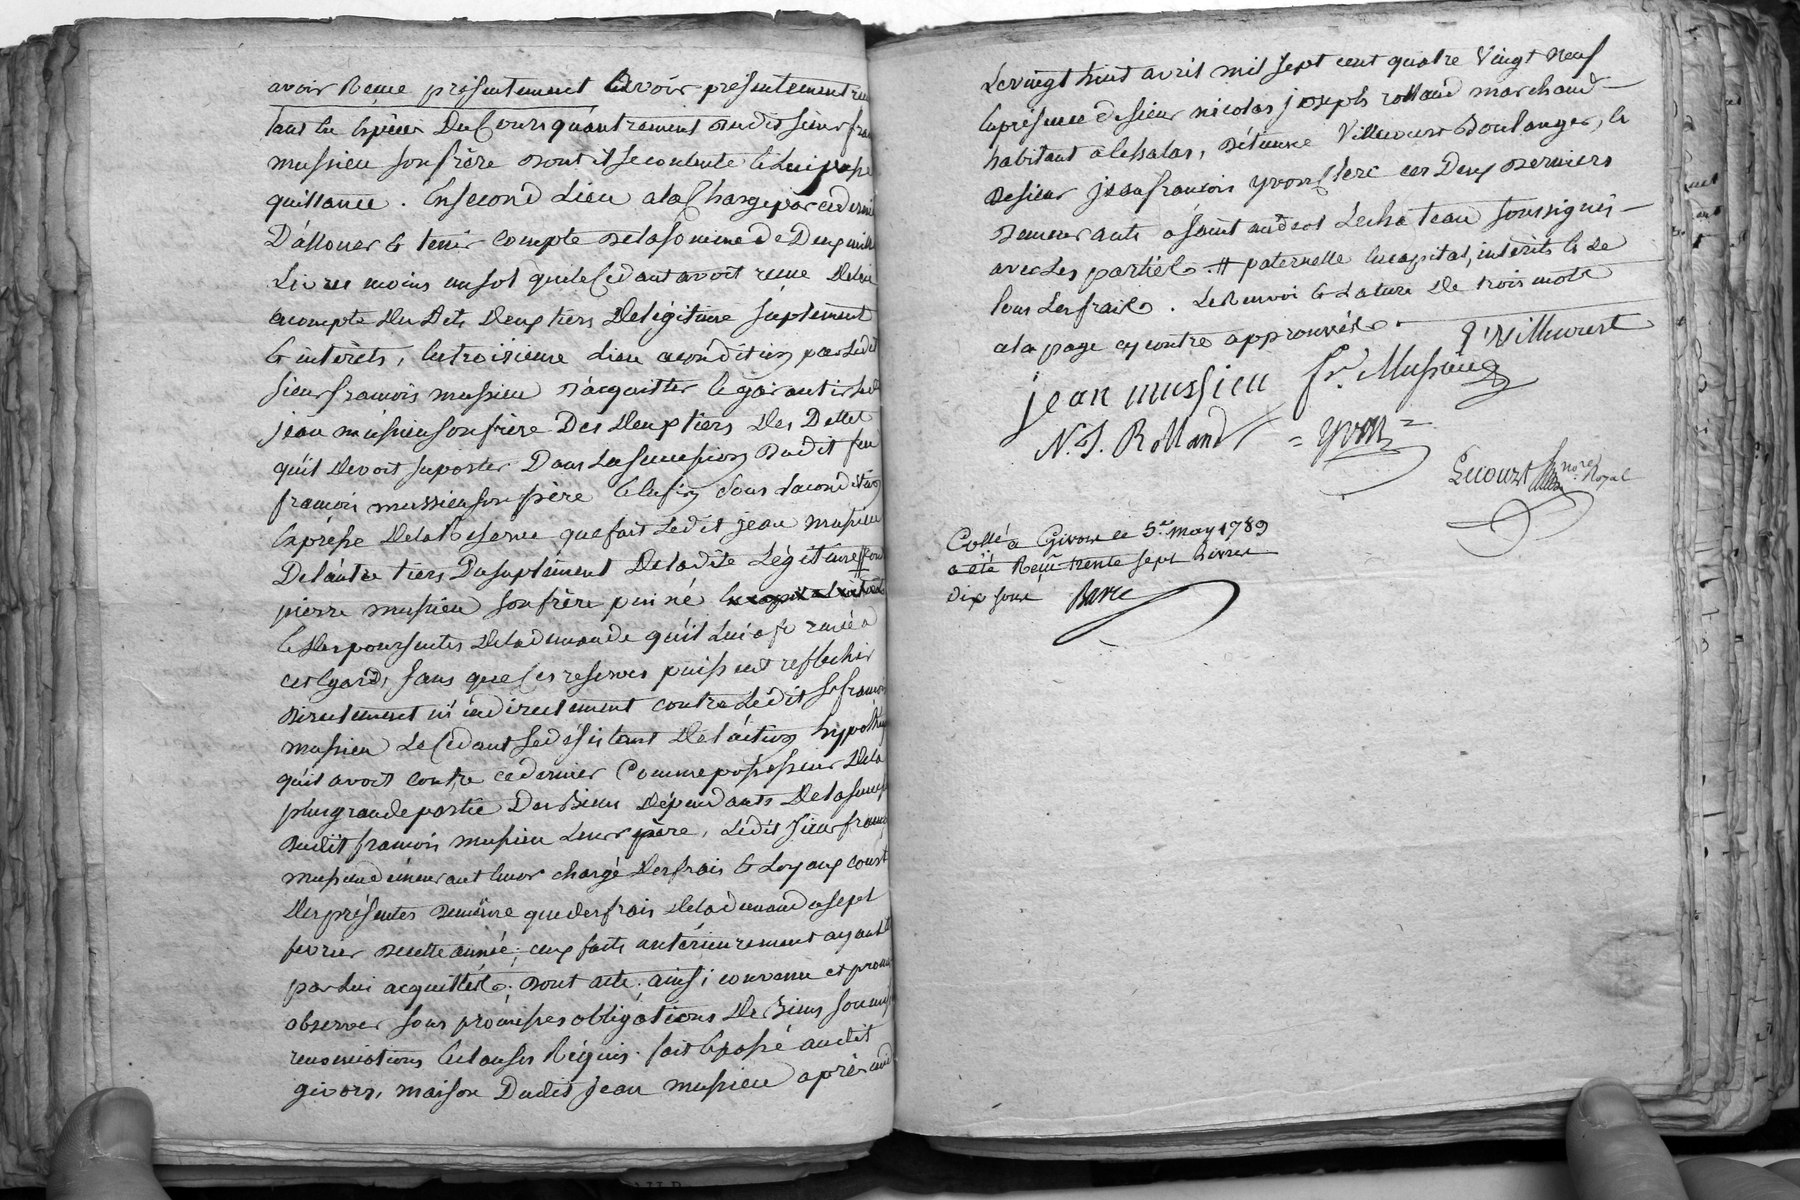 avoir Reçue présentement avoir présentement reçu
tant en espèces du Cours quautrement dudit sieur fran
mussieu son frère dont il se contente et lui passe
quittance. En second Lieu a la Charge par ce dernier
D'allouer et tenir compte de la somme de Deux mille
Livres moins un sol que le Cédant avoit reçue de lui
acompte des dits deux tiers de légitime suplément
et intérêts, en troisieme Lieu a condition par ledit
sieur francois mussieu d'acquitter et garantir ledit
jean mussieu son frère Des deux tiers des Dettes
qu'il devoit suporter Dans la succession dudit feu
francois mussieu son père et enfin sous la condition
Expresse de la Réserve que fait Ledit jean mussieu
De l'autre tiers Du suplément De ladite Légitime #
pierre mussieu son frère puiné
et des poursuites de la demande qu'il lui a formée a
cet égard, sans que Ces reserves puissent refléchir
directement ni indirectement contre Ledit Sr francois
mussieu Le Cédant se désistant de l'action hypothéq
qu'il avoit contre ce dernier Comme possesseur de la
plus grande partie Des Biens dépendants De la succes
dudit francois mussieu Leur père, Ledit sieur franco
mussieu demeurant encor chargé des frais et Loyaux couts
des présentes de même que des frais de la demande du sept
fevrier de cette année, ceux faits antérieurement ayant été
par lui acquittés. dont acte. ainsi convenu et promis
observer sous promesses obligations de Biens soumiss
renonciations et clauses Réquis. fait et passé audit
givors, maison Dudit jean mussieu après midi
Le vingt huit avril mil sept cent quatre Vingt Neuf
En présence de sieur nicolas joseph rolland marchand
habitant a Echalas, d'étienne Villecourt Boulanger, et
de sieur jean francois yvon Clerc ces Deux derniers
demeurants a saint andéol Le chateau soussignés
avec Les parties. # paternelle en capital, intérêts et de
tous Les frais. Le Renvoi et Rature de trois mots
a la page cy contre approuvés.
E Villecourt
jean mussieu fr. Mussieu
N. J. Rolland = yvon =
Lecourt nore Royal
Collé a Givors le 5e may 1789
a été Reçu trente sept Livres
dix sous Barre